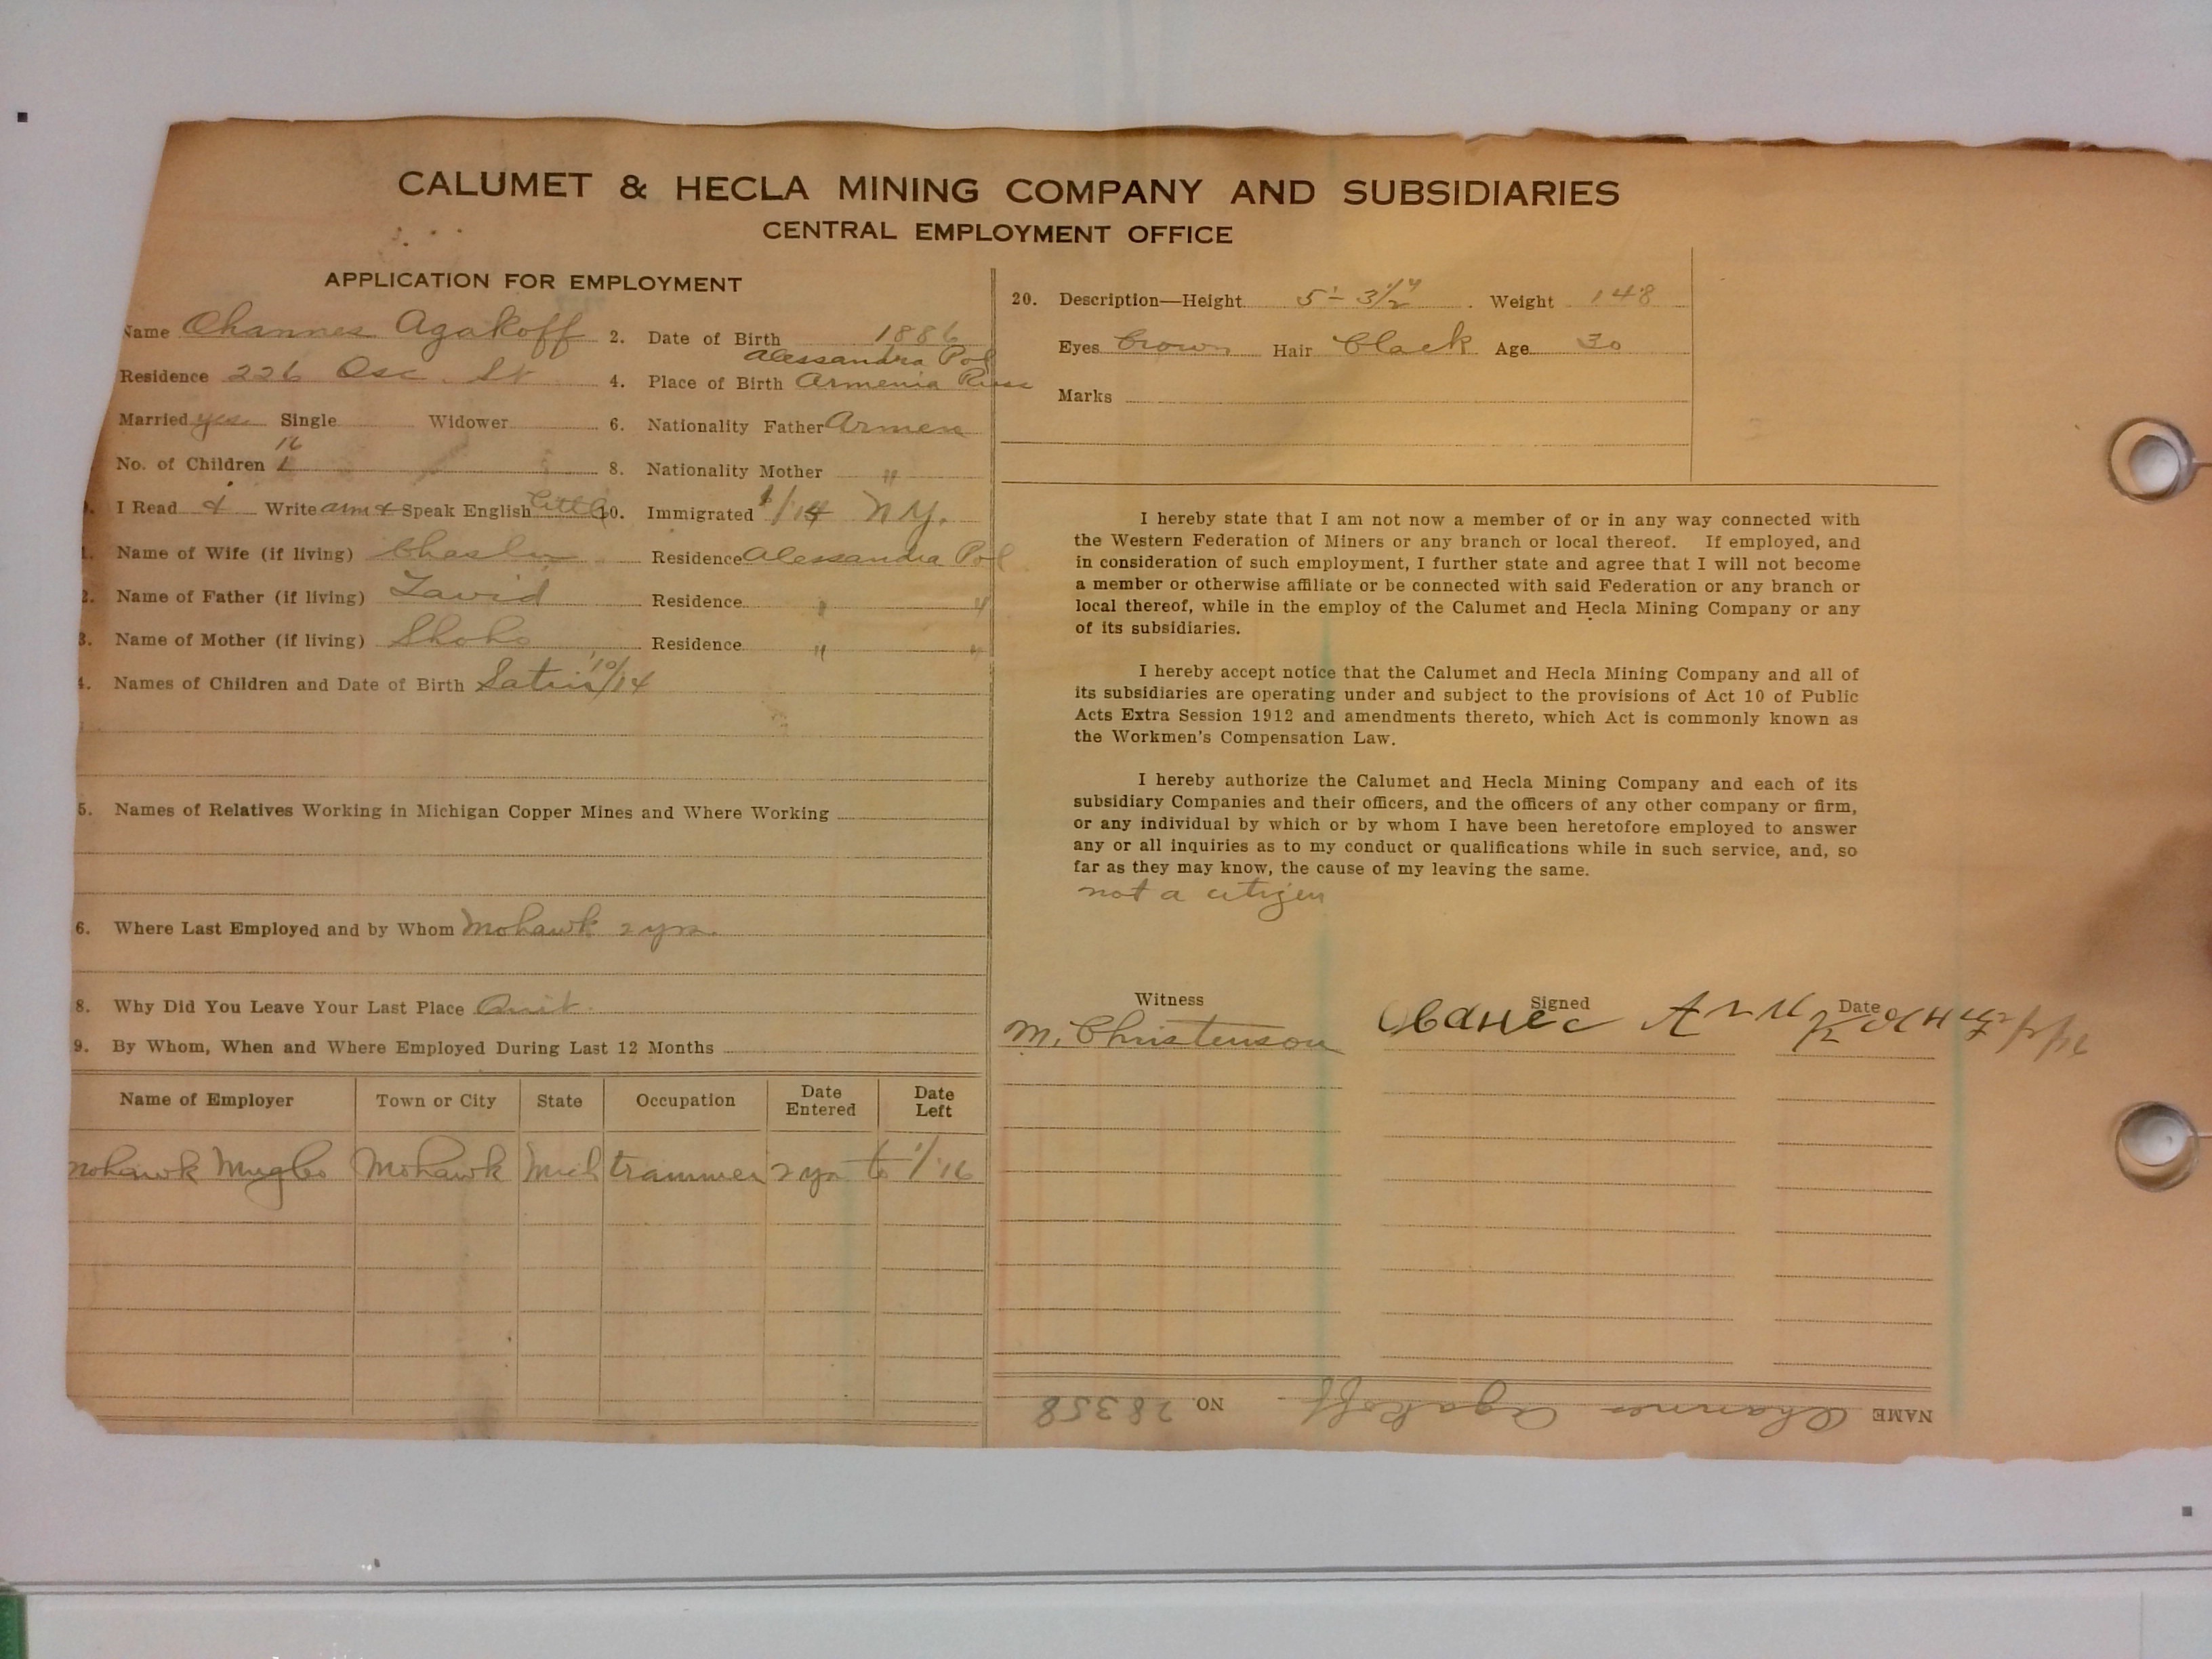 CALUMET & HECLA MINING COMPANY AND SUBSIDIARIES
CENTRAL EMPLOYMENT OFFICE
APPLICATION FOR EMPLOYMENT
Name Ohannes Agakoff 2. Date of Birth 1886
Residence 226 Osc. St 4. Place of Birth Alessandra Pol Armenia Russ
Married yes Single Widower 6. Nationality Father Armen
No. of Children 8. Nationality Mother "
I Read & Write arm & Speak English little 10. Immigrated /14 N.Y.
1. Name of Wife (if living) Residence Alessandra Pol
2. Name of Father (if living) Residence " "
3. Name of Mother (if living) Shoho Residence " "
4. Names of Children and Date of Birth 10/14
5. Names of Relatives Working in Michigan Copper Mines and Where Working
6. Where Last Employed and by Whom Mohawk 2 yrs.
8. Why Did You Leave Your Last Place Quit
9. By Whom, When and Where Employed During Last 12 Months
Name of Employer Town or City State Occupation Date Entered Date Left
Mohawk Mng Co Mohawk Mich trammer 2 yrs to 1/16
20. Description—Height 5'- 3 1/2" Weight 148
Eyes brown Hair black Age 30
Marks
I hereby state that I am not now a member of or in any way connected with
the Western Federation of Miners or any branch or local thereof. If employed, and
in consideration of such employment, I further state and agree that I will not become
a member or otherwise affiliate or be connected with said Federation or any branch or
local thereof, while in the employ of the Calumet and Hecla Mining Company or any
of its subsidiaries.
I hereby accept notice that the Calumet and Hecla Mining Company and all of
its subsidiaries are operating under and subject to the provisions of Act 10 of Public
Acts Extra Session 1912 and amendments thereto, which Act is commonly known as
the Workmen's Compensation Law.
I hereby authorize the Calumet and Hecla Mining Company and each of its
subsidiary Companies and their officers, and the officers of any other company or firm,
or any individual by which or by whom I have been heretofore employed to answer
any or all inquiries as to my conduct or qualifications while in such service, and, so
far as they may know, the cause of my leaving the same.
not a citizen
Witness Signed Date
M. Christenson
NAME Ohannes Agakoff NO. 28358